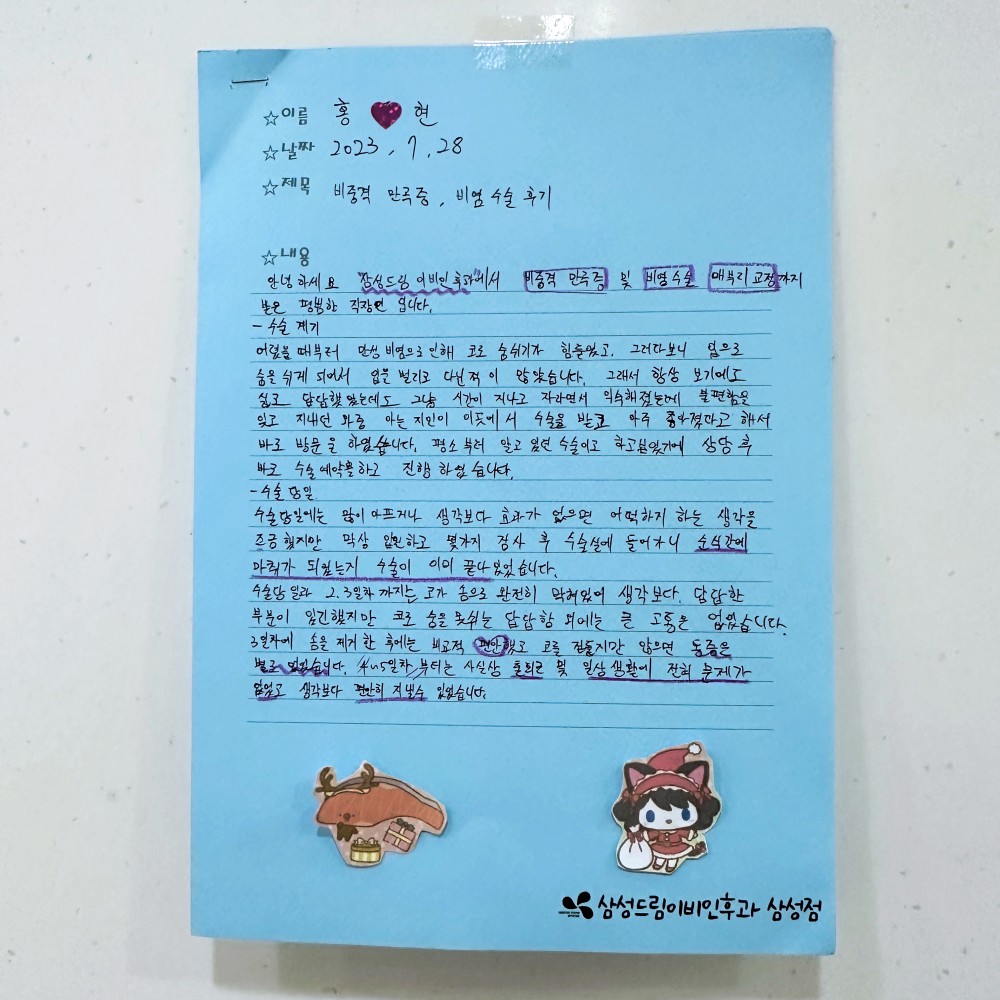 ☆이름 홍 현
☆날짜 2023. 7. 28
☆제목 비중격 만곡증, 비염 수술 후기
☆내용
안녕하세요 "삼성드림 이비인후과"에서 비중격 만곡증 및 비염수술 매부리 교정까지
받은 평범한 직장인 입니다.
- 수술 계기
어렸을때부터 만성 비염으로 인해 코로 숨쉬기가 힘들었고, 그러다보니 입으로
숨을 쉬게 되어서 입을 벌리고 다닌적이 많았습니다. 그래서 항상 보기에도
답답했었는데도 그냥 시간이 지나고 자라면서 익숙해졌는데 불편함을
잊고 지내던 와중 아는 지인이 이곳에서 수술을 받고 아주 좋아졌다고 해서
바로 방문을 하였습니다. 평소부터 알고 있던 수술이고 하고싶었기에 상담 후
바로 수술예약을하고 진행 하였습니다.
- 수술 당일
수술당일에는 많이 아프거나 생각보다 효과가 없으면 어떡하지 하는 생각을
조금 했지만 막상 입원하고 몇가지 검사 후 수술실에 들어가니 순식간에
마취가 되었는지 수술이 이미 끝나있었습니다.
수술당일과 2,3일차까지는 코가 솜으로 완전히 막혀있어 생각보다. 답답한
부분이 있긴했지만 코로 숨을못쉬는 답답함 외에는 큰 고통은 없었습니다.
3일차에 솜을 제거한 후에는 비교적 편안했고 코를 건들지만 않으면 통증은
별로 없었습니다. 4~5일차 부터는 사실상 출퇴근 및 일상생활에 전혀 문제가
없었고 생각보다 편안히 지낼수 있었습니다.
삼성드림이비인후과 삼성점